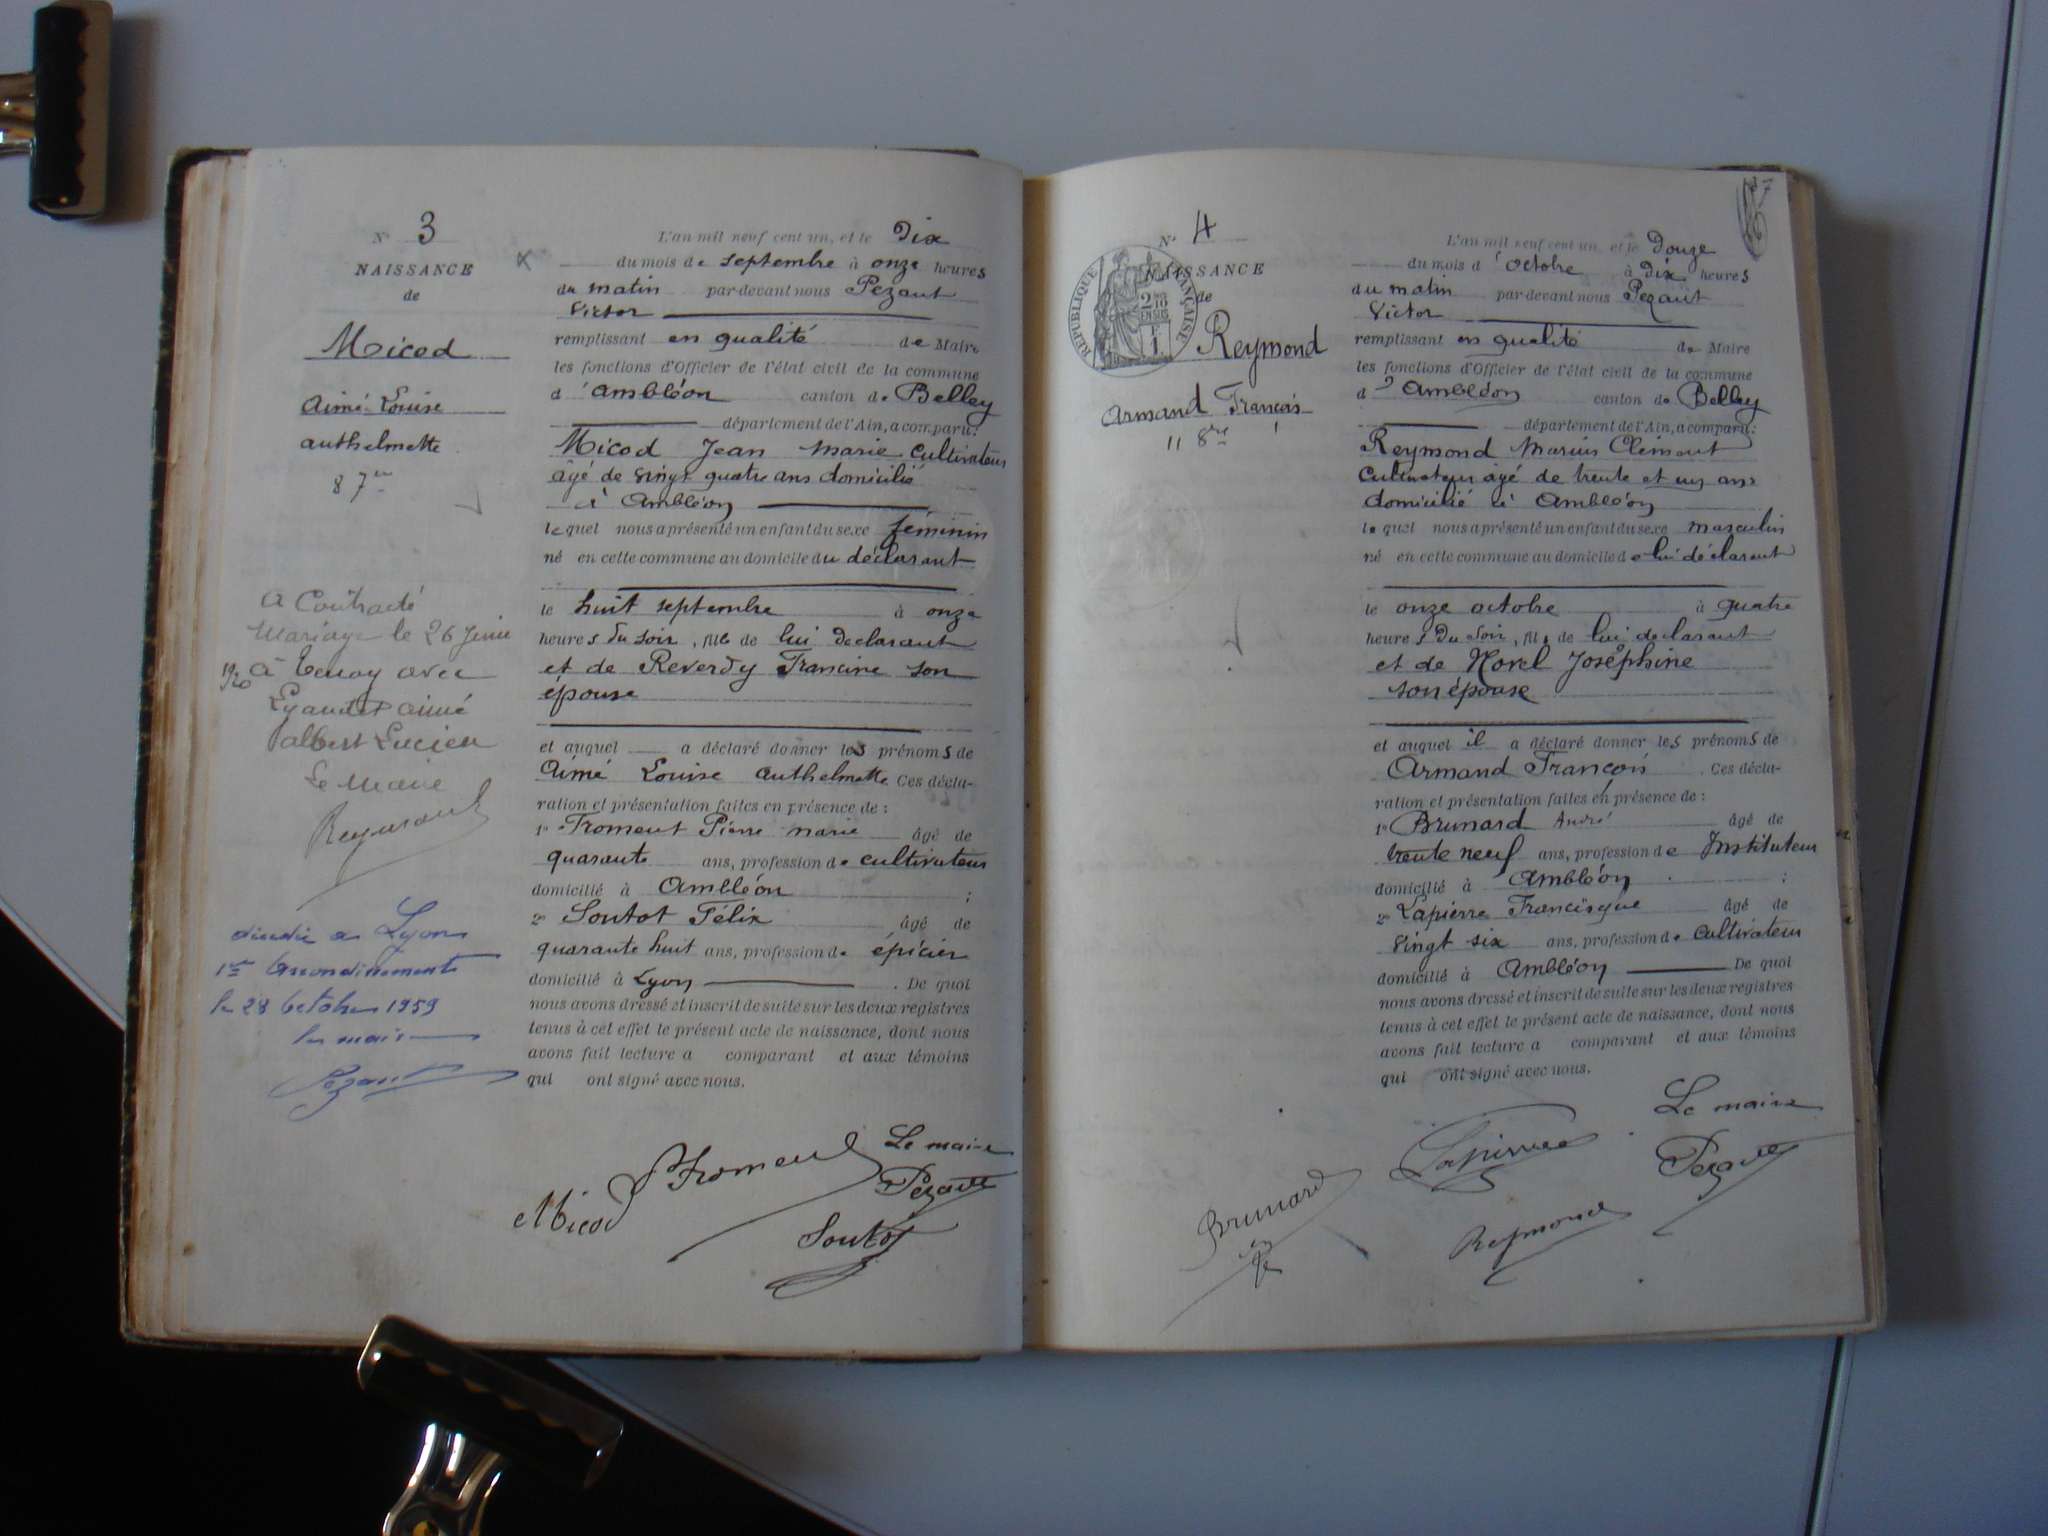 N° 3
NAISSANCE
de
Micod
Aimé Louise
anthelmette
L'an mil neuf cent un, et le Dix
du mois de septembre à onze heures
du matin par-devant nous Pezaut
Victor
remplissant en qualité de Maire
les fonctions d'Officier de l'état civil de la commune
d'Ambléon canton de Belley
département de l'Ain, a comparu:
Micod Jean Marie cultivateur
âgé de vingt quatre ans domicilié
à Ambléon
lequel nous a présenté un enfant du sexe féminin
né en cette commune au domicile du déclarant
le huit septembre à onze
heures du soir, fille de lui declarant
et de Reverdy Francine son
épouse
et auquel a déclaré donner les prénoms de
Aimé Louise anthelmette Ces décla-
ration et présentation faites en présence de :
1° Froment Pierre marie âgé de
quarante ans, profession de cultivateur
domicilié à Ambléon ;
2° Soutot Félix âgé de
quarante huit ans, profession de épicier
domicilié à Lyon . De quoi
nous avons dressé et inscrit de suite sur les deux registres
tenus à cet effet le présent acte de naissance, dont nous
avons fait lecture a comparant et aux témoins
qui ont signé avec nous.
A Contracté
Mariage le 26 Juin
1920 à Tenay avec
aimé
albert Lucien
Le Maire
Reymond
à Lyon
1er Arrondissement
le 28 Octobre 1959
le maire
Pezaut
Le maire
Micod Froment Pezaut
Soutot
N° 4
NAISSANCE
de
Reymond
Armand François
RÉPUBLIQUE FRANÇAISE
2/10 EN SUS
F. 1.
L'an mil neuf cent un, et le Douze
du mois d'octobre à Dix heures
du matin par-devant nous Pezaut
Victor
remplissant en qualité de Maire
les fonctions d'Officier de l'état civil de la commune
d'Ambléon canton de Belley
département de l'Ain, a comparu:
Reymond Marius Clément
cultivateur âgé de trente et un ans
domicilié à Ambléon
lequel nous a présenté un enfant du sexe masculin
né en cette commune au domicile de lui déclarant
le onze octobre à quatre
heures Du soir, fils de lui declarant
et de Morel Joséphine
son épouse
et auquel il a déclaré donner les prénoms de
Armand François . Ces décla-
ration et présentation faites en présence de :
1° Brunard André âgé de
trente neuf ans, profession de Instituteur
domicilié à Ambléon ;
2° Lapierre Francisque âgé de
vingt six ans, profession de cultivateur
domicilié à Ambléon De quoi
nous avons dressé et inscrit de suite sur les deux registres
tenus à cet effet le présent acte de naissance, dont nous
avons fait lecture a comparant et aux témoins
qui ont signé avec nous.
Le maire
Brunard Lapierre Pezaut
Reymond